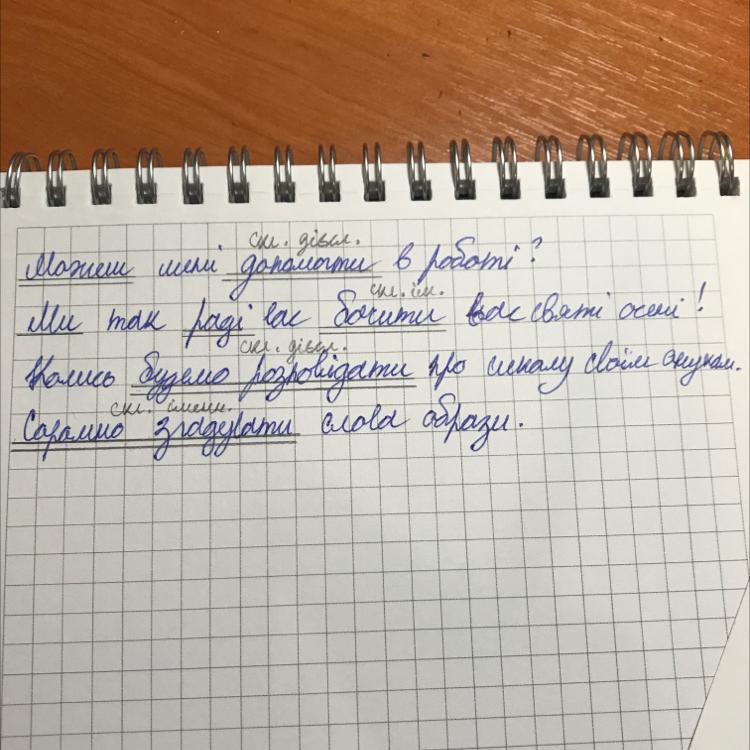 скл. дієсл.
Можеш мені допомогти в роботі?
скл. ім.
Ми так раді вас бачити вас святі осені!
скл. дієсл.
Колись будемо розповідати про школу своїм онукам.
скл. іменн.
Соромно згадувати слова образи.